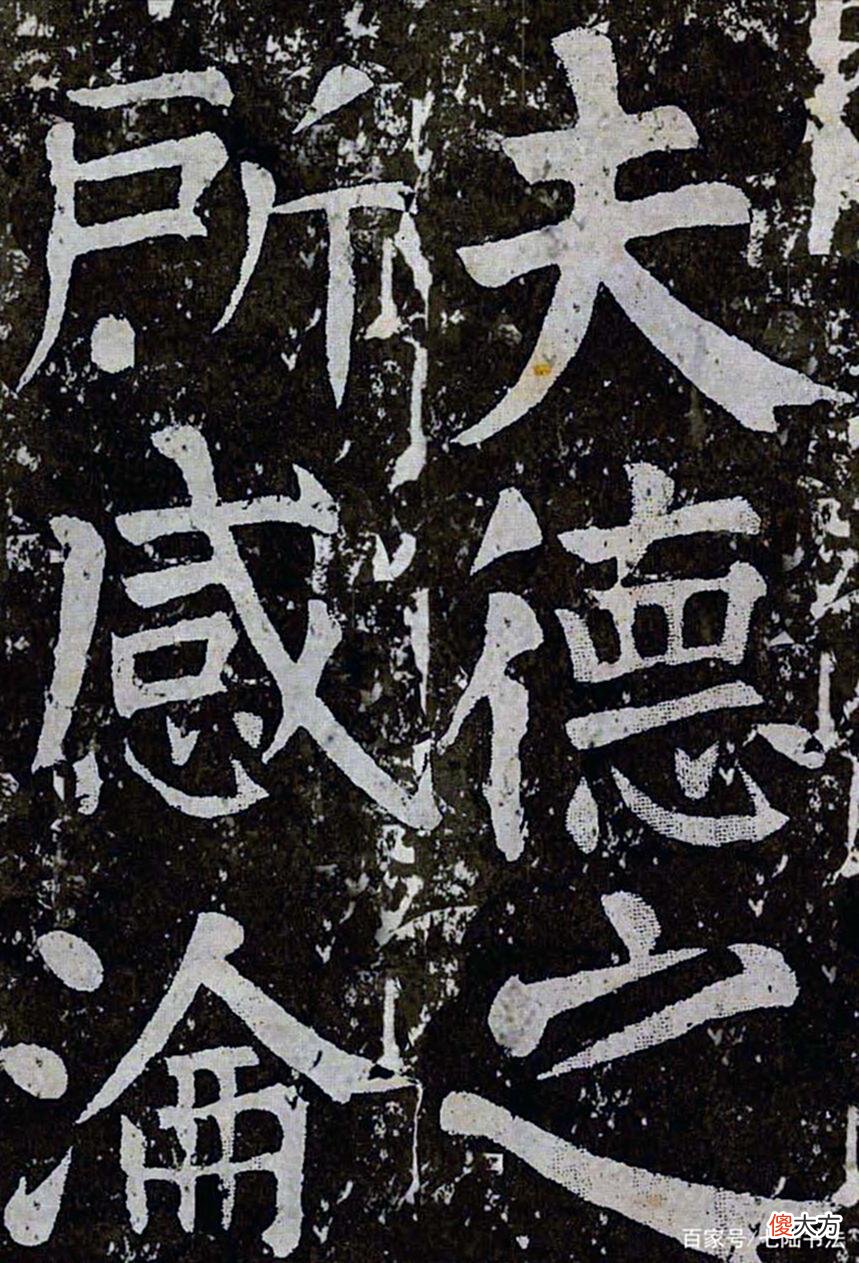 夫德之
所感淪
百家号/七陆书法
傻大方